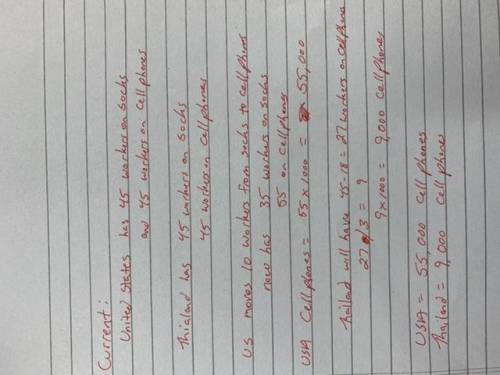 Current:
United States has 45 workers on socks
and 45 workers on cellphones
Thialand has 45 workers on socks
45 workers on cellphones
US moves 10 workers from socks to cellphones
now has 35 workers on socks
55 on cellphones
USA Cellphones = 55 x 1000 = 55,000
Thailand will have 45-18 = 27 workers on cellphones
27 / 3 = 9
9 x 1000 = 9,000 cellphones
USA = 55,000 cellphones
Thailand = 9,000 cellphones